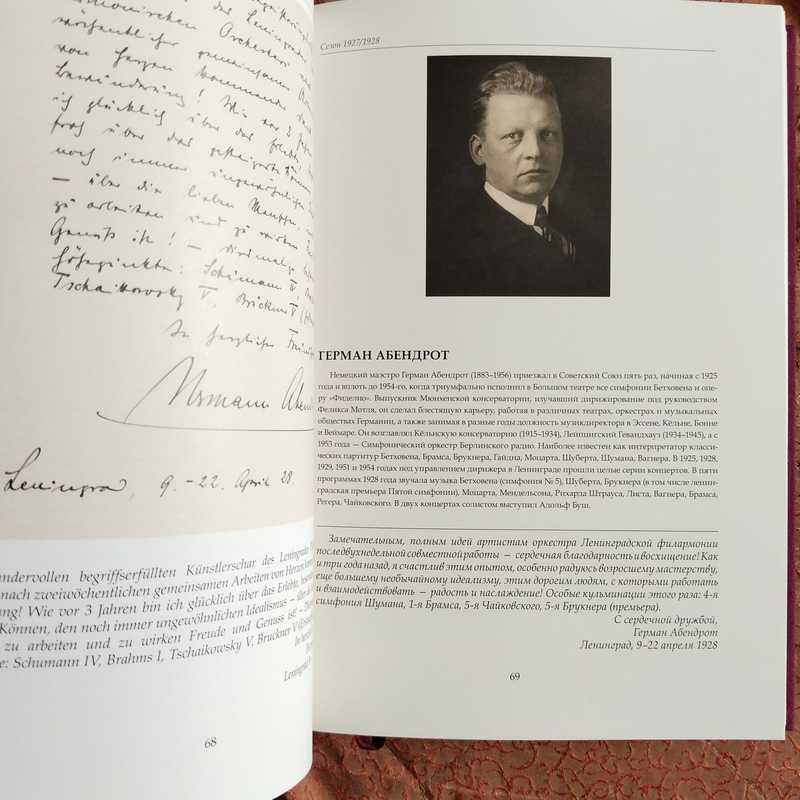 des Leningrader
monischen Orchesters
von Herzen kommende
Bewunderung! Wie vor 3
ich glücklich über das Erlebte,
froh über das gesteigerte Können,
noch immer ungewöhnlichen
— über die lieben Menschen,
zu arbeiten und zu wirken
Genuss ist! —
Höhepunkte: Schumann IV,
Tschaikowsky V, Bruckner V
In herzlicher
Hermann Aben
Leningrad, 9.-22. April 28.
ndervollen begriffserfüllten Künstlerschar des
nach zweiwöchentlichen gemeinsamen Arbeiten von Herzen
ng! Wie vor 3 Jahren bin ich glücklich über das Erlebte,
Können, den noch immer ungewöhnlichen Idealismus – über
zu arbeiten und zu wirken Freude und Genuss ist –
e: Schumann IV, Brahms I, Tschaikowsky V, Bruckner V
68
Сезон 1927/1928
ГЕРМАН АБЕНДРОТ
Немецкий маэстро Герман Абендрот (1883–1956) приезжал в Советский Союз пять раз, начиная с 1925
года и вплоть до 1954-го, когда триумфально исполнил в Большом театре все симфонии Бетховена и опе-
ру «Фиделио». Выпускник Мюнхенской консерватории, изучавший дирижирование под руководством
Феликса Мотля, он сделал блестящую карьеру, работая в различных театрах, оркестрах и музыкальных
обществах Германии, а также занимая в разные годы должность музикдиректора в Эссене, Кёльне, Бонне
и Веймаре. Он возглавлял Кёльнскую консерваторию (1915–1934), Лейпцигский Гевандхауз (1934–1945), а с
1953 года — Симфонический оркестр Берлинского радио. Наиболее известен как интерпретатор класси-
ческих партитур Бетховена, Брамса, Брукнера, Гайдна, Моцарта, Шуберта, Шумана, Вагнера. В 1925, 1928,
1929, 1951 и 1954 годах под управлением дирижера в Ленинграде прошли целые серии концертов. В пяти
программах 1928 года звучала музыка Бетховена (симфония № 5), Шуберта, Брукнера (в том числе ленин-
градская премьера Пятой симфонии), Моцарта, Мендельсона, Рихарда Штрауса, Листа, Вагнера, Брамса,
Регера, Чайковского. В двух концертах солистом выступил Адольф Буш.
Замечательным, полным идей артистам оркестра Ленинградской филармонии
после двухнедельной совместной работы — сердечная благодарность и восхищение! Как
и три года назад, я счастлив этим опытом, особенно радуюсь возросшему мастерству,
еще большему необычайному идеализму, этим дорогим людям, с которыми работать
и взаимодействовать — радость и наслаждение! Особые кульминации этого раза: 4-я
симфония Шумана, 1-я Брамса, 5-я Чайковского, 5-я Брукнера (премьера).
С сердечной дружбой,
Герман Абендрот
Ленинград, 9–22 апреля 1928
69